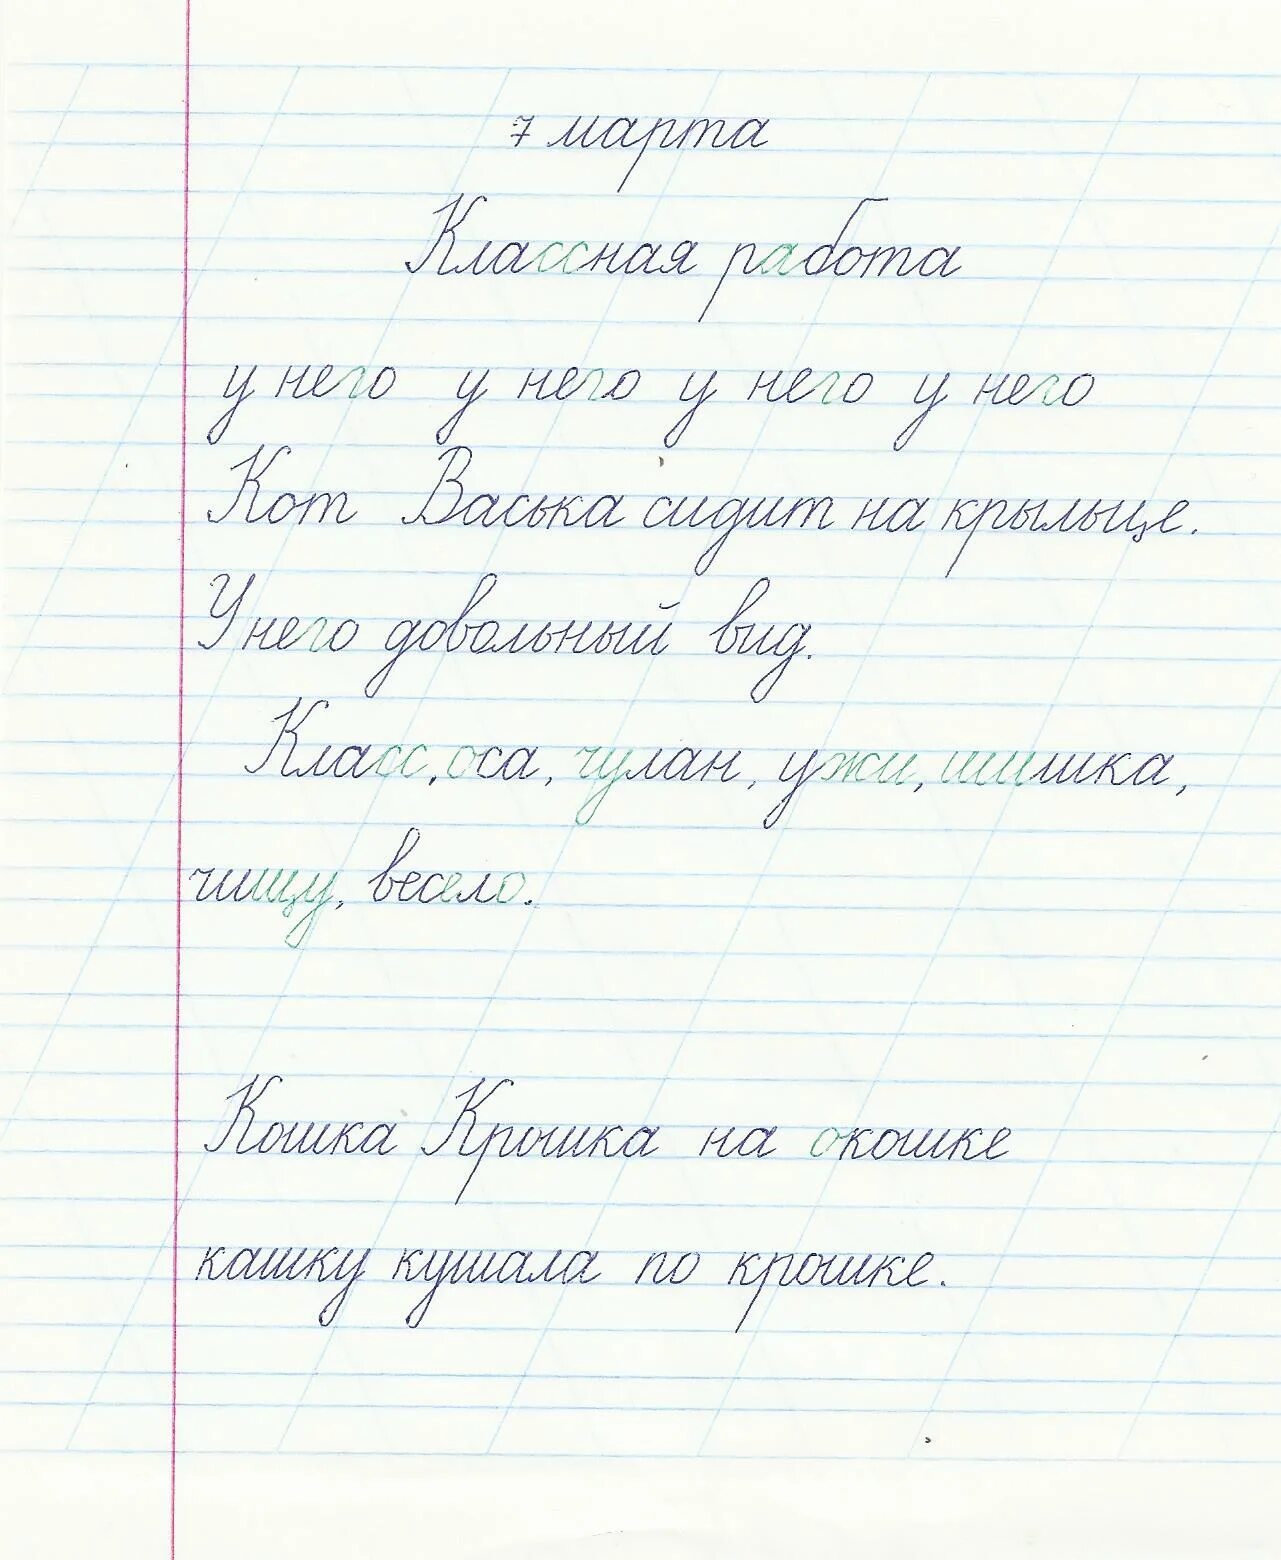 7 марта
Классная работа
у него у него у него у него
Кот Васька сидит на крыльце.
У него довольный вид.
Класс, оса, чулан, ужи, шишка,
чищу, весело.
Кошка Крошка на окошке
кашку кушала по крошке.